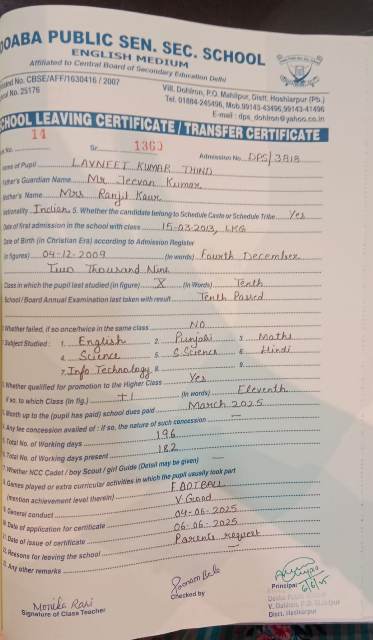 DOABA PUBLIC SEN. SEC. SCHOOL
ENGLISH MEDIUM
Affiliated to Central Board of Secondary Education Delhi
No. CBSE/AFF/1630416 / 2007
No. 25176
Vill. Dohlron, P.O. Mahilpur, Distt. Hoshiarpur (Pb.)
Tel. 01884-245496, Mob.99143-43496,99143-41496
E-mail : dps_dohlron@yahoo.co.in
SCHOOL LEAVING CERTIFICATE / TRANSFER CERTIFICATE
No. 14 Sr. 1360 Admission No. DPS/3818
Name of Pupil LAVNEET KUMAR THIND
Father's Guardian Name Mr Jeevan Kumar
Mother's Name Mrs Ranjit Kaur
Nationality Indian 5. Whether the candidate belong to Schedule Caste or Schedule Tribe Yes
Date of first admission in the school with class 15-03-2013, LKG
Date of Birth (in Christian Era) according to Admission Register
(in figures) 04-12-2009 (in words) Fourth December
Two Thousand Nine
Class in which the pupil last studied (in figure) X (in Words) Tenth
School / Board Annual Examination last taken with result Tenth Passed
Whether failed, if so once/twice in the same class NO
Subject Studied : 1. English 2. Punjabi 3. Maths
4. Science 5. S.Science 6. Hindi
7. Info Technology 8. 9.
Whether qualified for promotion to the Higher Class Yes
If so, to which Class (in fig.) +1 (in Words) Eleventh
Month up to the (pupil has paid) school dues paid March 2025
Any fee concession availed of : if so, the nature of such concession —
Total No. of Working days 196
Total No. of Working days present 182
Whether NCC Cadet / boy Scout / girl Guide (Detail may be given) —
Games played or extra curricular activities in which the pupil usually took part
(mention achievement level therein) FOOTBALL
General conduct V. Good
Date of application for certificate 04-06-2025
Date of issue of certificate 06-06-2025
Reasons for leaving the school Parents request
Any other remarks —
Signature of Class Teacher
Checked by
Principal
6/6/25
Distt. Hoshiarpur